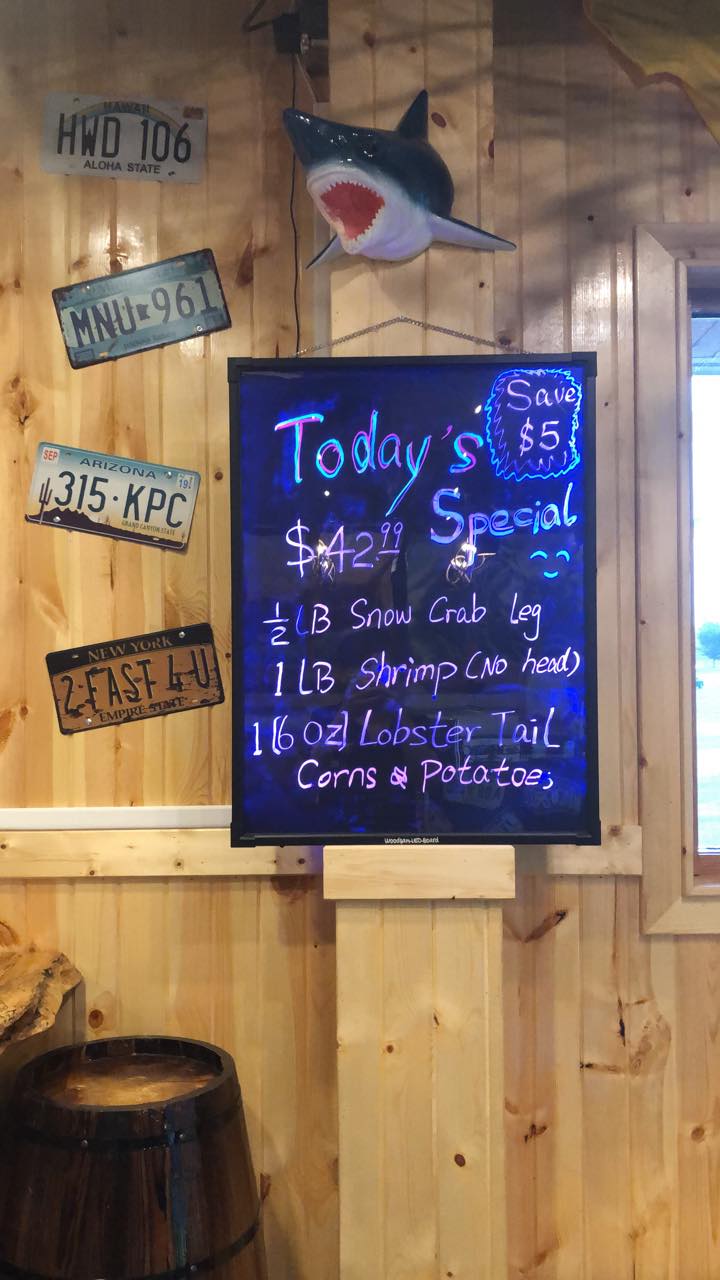 HAWAII
HWD 106
ALOHA STATE
MNU 961
SEP
ARIZONA
19
315·KPC
GRAND CANYON STATE
NEW YORK
2 FAST 4 U
EMPIRE STATE
Save
$5
Today's
Special
$42.99
½ LB Snow Crab Leg
1 LB Shrimp (No head)
1 [6 oz] Lobster Tail
Corns & Potatoes